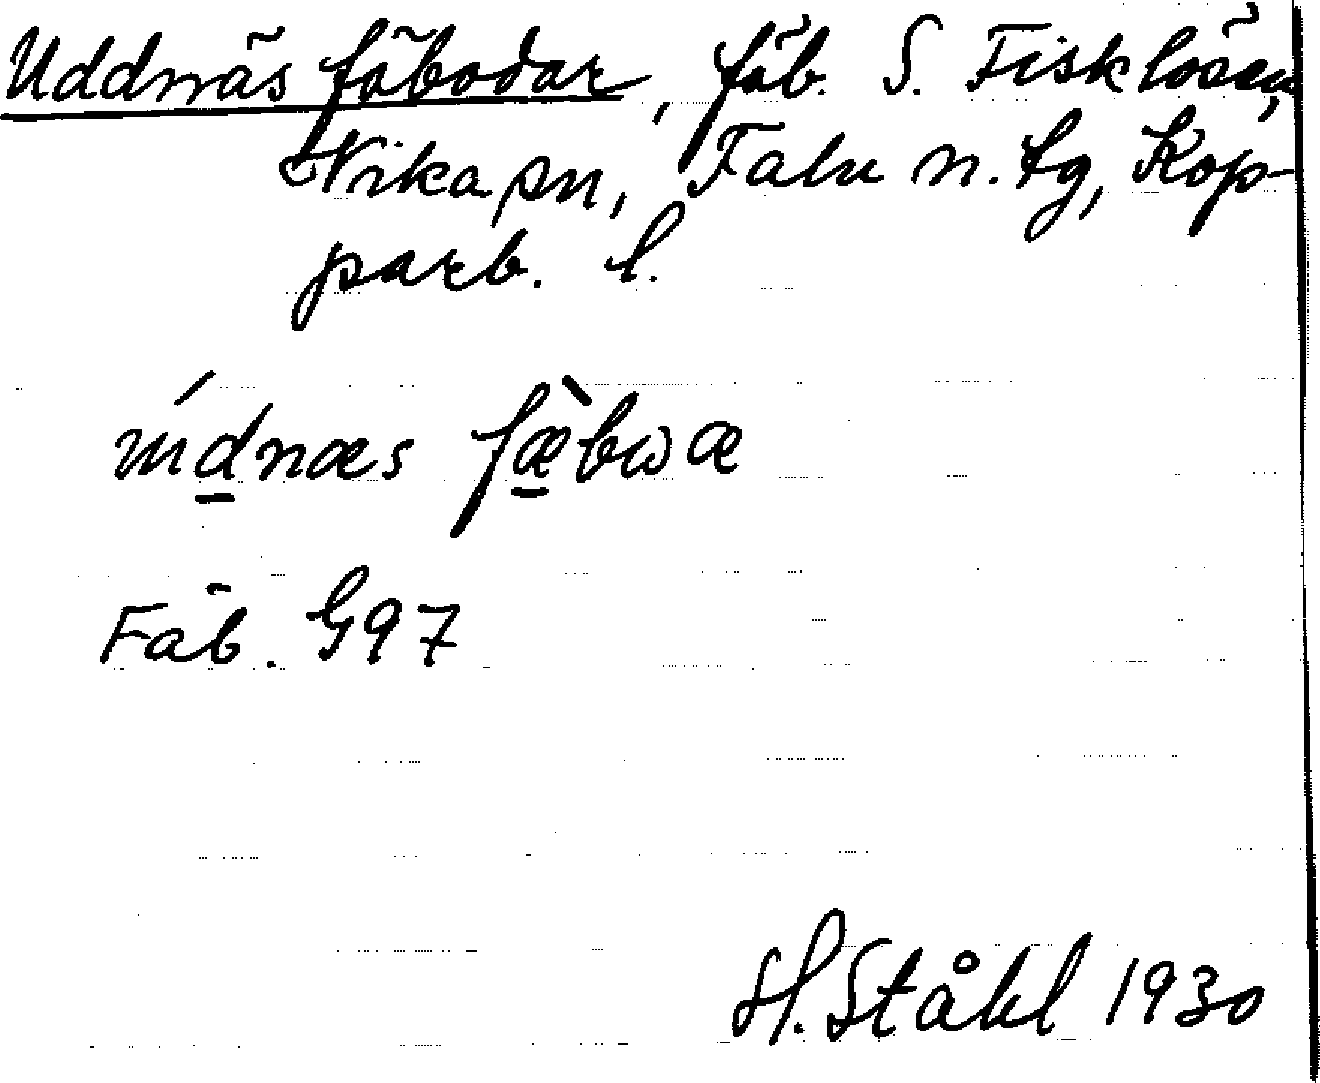 Uddnäs fäbodar, fäb. S. Fisklösen,
Vika sn, Falu n. tg, Kop-
parb. l.
údnæs fæ̀bωæ
Fäb. G97
H. Ståhl 1930